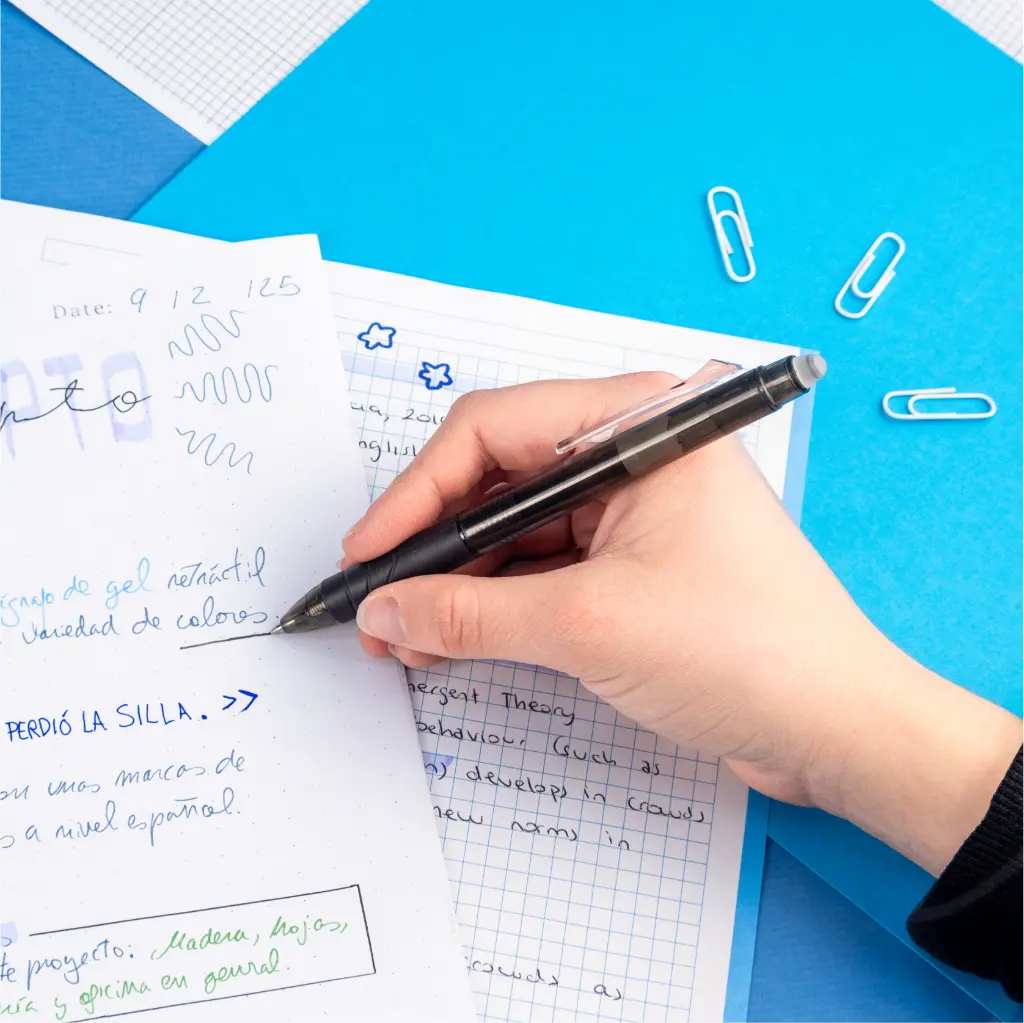 Date: 9 12 125
pto
de gel retráctil
variedad de colores.
PERDIÓ LA SILLA. >>
unas marcas de
a nivel español.
proyecto: Madera, hojas,
y oficina en general.
2016
Theory
behaviour (such as
develops in crowds
new norms in
crowds as